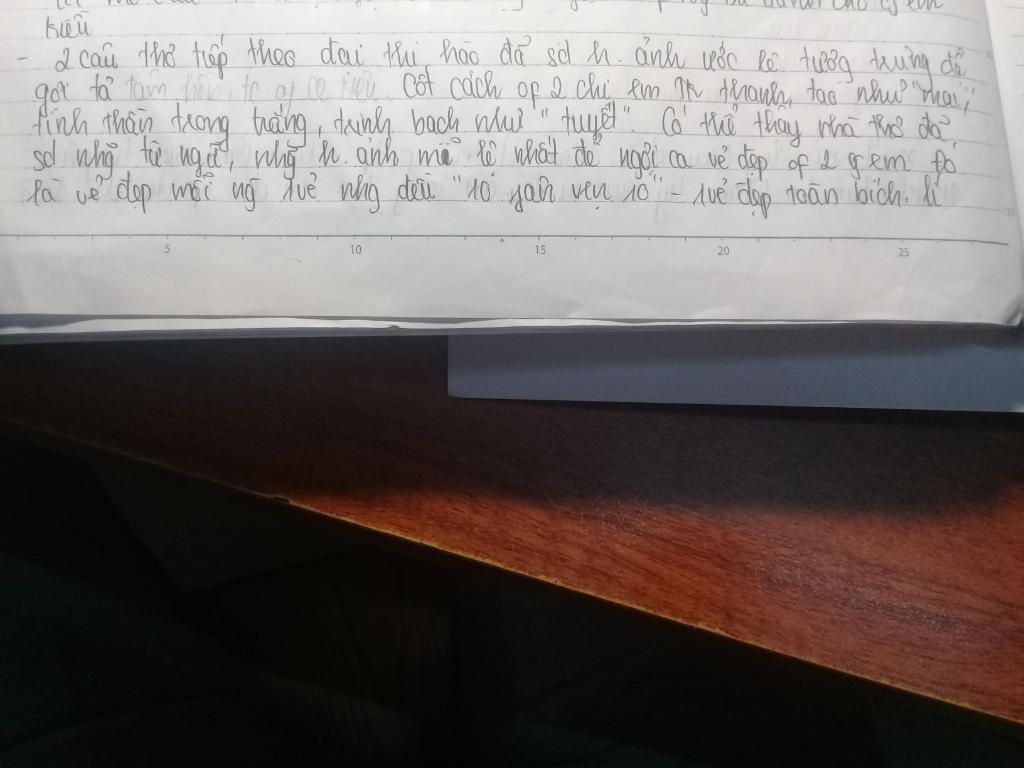 kiều
- 2 câu thơ tiếp theo đại thi hào đã sd h. ảnh ước lệ tượng trưng để
gợi tả tâm hồn, Cốt cách of 2 chị em thanh tao như "mai",
tinh thần trong trắng, trinh bạch như "tuyết". Có thể thấy nhà thơ đã
sd nhg từ ngữ, nhg h. ảnh mĩ lệ nhất để ngợi ca vẻ đẹp of 2 c em. Đó
là vẻ đẹp mỗi ng 1 vẻ nhg đều "10 phân vẹn 10" - 1 vẻ đẹp toàn bích. lí
5 10 15 20 25